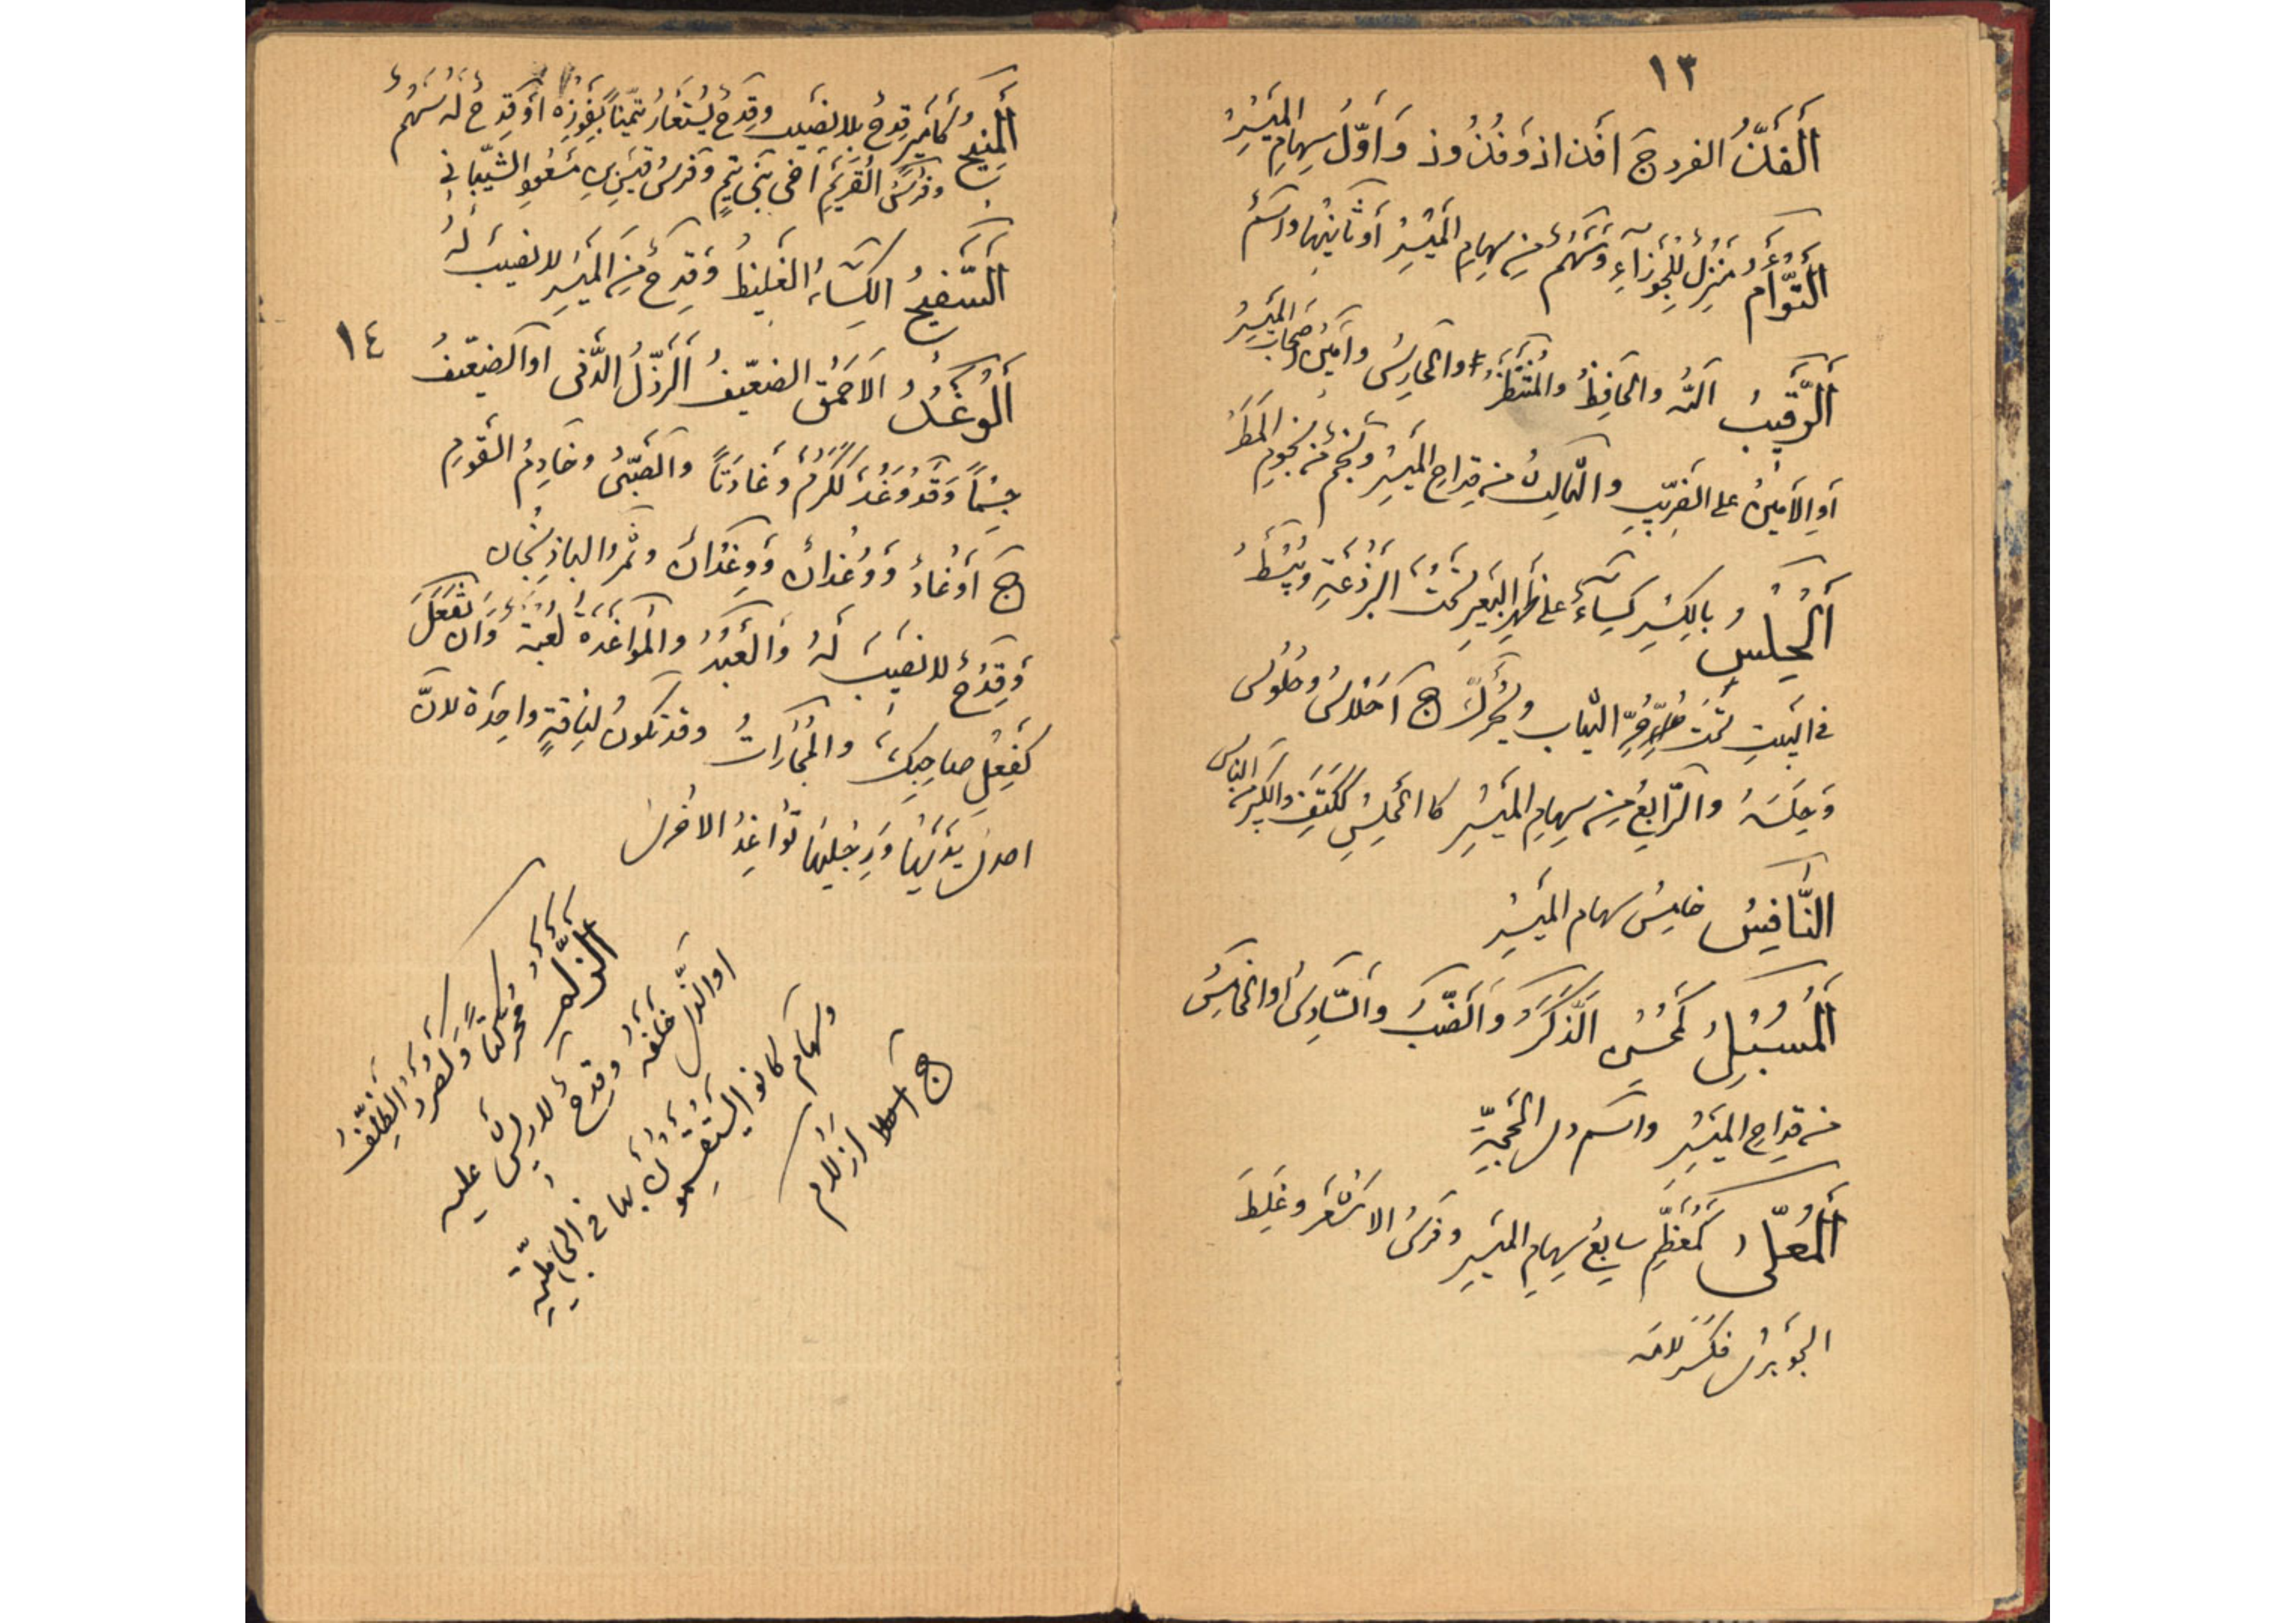 ١٣
اَلفَذُّ الفرد ج افذاذ وَفُذُوذ وَأوّلُ سِهامِ المَيْسِرُ
اَلتَّوْأَمُ مَنْزِلٌ لِلْجَوْزَاءِ وَسَهْمٌ مِنْ سِهامِ المَيْسِرُ أوْثَانِيْهَا وَاسْمٌ
اَلرَّقِيْبُ اَللّه وَالحَافِظُ وَالمُنْتَظِرُ وَالحَارِسُ وَاَمِيْنُ اصْحَابِ المَيْسِرُ
أوِ الأمِيْنُ على الضَرِيْبِ وَالثّالِثُ مِنْ قِداحِ المَيْسِرْ وَنَجْمٌ مِنْ نُجُومِ المَطَرْ
اَلْحِلْسُ بِالكِسْرِ كِسَاءٌ على ظَهْرِ البَعِيرِ تَحْتَ البَرْذَعَةِ وَيُبْسَطُ
فى البَيْتِ تَحْتَ حُرِّ الثِّيَاب وَيُحَرَّكْ ج اَحْلاسُ وَحُلُوسْ
وَحِلَسَهْ وَالرَّابِعُ مِنْ سِهامِ المَيْسِرِ كا الحَلِسِ كَكَتِفِ وَالكَبِيْر مِنَ النّاس
النَّافِسُ خامِسُ سهام المَيْسِرِ
اَلْمُسْبِلُ كَمُحْسِنْ اَلذَّكَرُ وَاَلضَّبُ وَالسّادِسُ اَوالخَامِسُ
مِنْ قِداحِ المَيْسِرِ واسم ذى الحَجّةِ
اَلْمُعَلَّى كَمُعَظَّمْ سابِعُ سِهامِ المَيْسِرِ وفَرَسُ الاشْعَرْ وغَلِطَ
الجَوْهَرِىْ فَكَسَرَ لامَه
اَلْمَنِيْحُ كَأمِيْرٍ قِدْحٌ بِلا نَصِيْب وقِدْحٌ يُسْتَعَارُ تَيَمُّنًا بِفَوْزِهْ أوْ قِدْحٌ لَهُ سَهْمٌ
وفَرَسُ القُرَيْمِ اخى بَنِى تَيْمٍ وَفَرَسُ قَيْسِ بِنِ مَسْعُودِ الشَيْبَانِى
اَلسَّفِيْحُ الكِسَاءُ الغَلِيْظُ وَقِدْحٌ مِنَ المَيْسِرْ لا نصِيْبَ لَهُ
١٤
اَلْوَغْدُ اَلاَحْمَقُ الضَعِيْفُ اَلرَّذْلُ الدَّنى اوالضَعِيْفُ
جِسْمًا وَقَدْ وَغُدَ كَكَرُمَ وَغَادَتًا وَالصَّبِىُّ وخَادِمُ القَوْمِ
ج أوْغَادُ وَوُغْدَانُ وَوِغْدَانْ وثَمْرُ البَاذِنْجَان
وَقِدْحٌ لا نصِيْبَ لَهُ وَالْعَبْدُ والْمُوَاغَدَةُ لُعْبَةٌ وَاَنْ تَفْعَلَ
كَفِعْلِ صَاحِبِكَ والمُجَارَاتُ وقد تكونُ لِنَاقَةٍ واحِدَة لانّ
احدى يَدَيْهَا وَرِجْلَيْهَا تُواغِدُ الاُخْرىْ
اَلزَّلَمُ مُحَرَّكَتًا وَكَصُرَدْ الظِلْفُ
اوالّذى خَلْفَه وَقِدْحٌ لا رِيْشَ عليه
وسِهَام كانو ايَسْتَقْسِمُونَ بها فى الجَاهِلِيّةِ
ج ازْلام